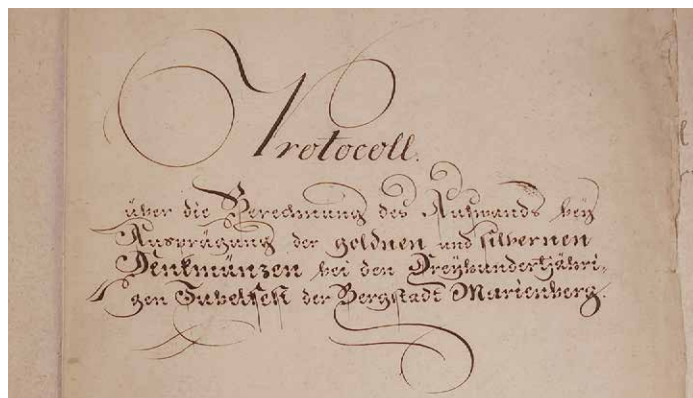 Protocoll.
über die Berechnung des Aufwands bey
Ausprägung der goldnen und silbernen
Denkmünzen bei den Dreyhundertjähri-
gen Jubelfest der Bergstadt Marienberg.